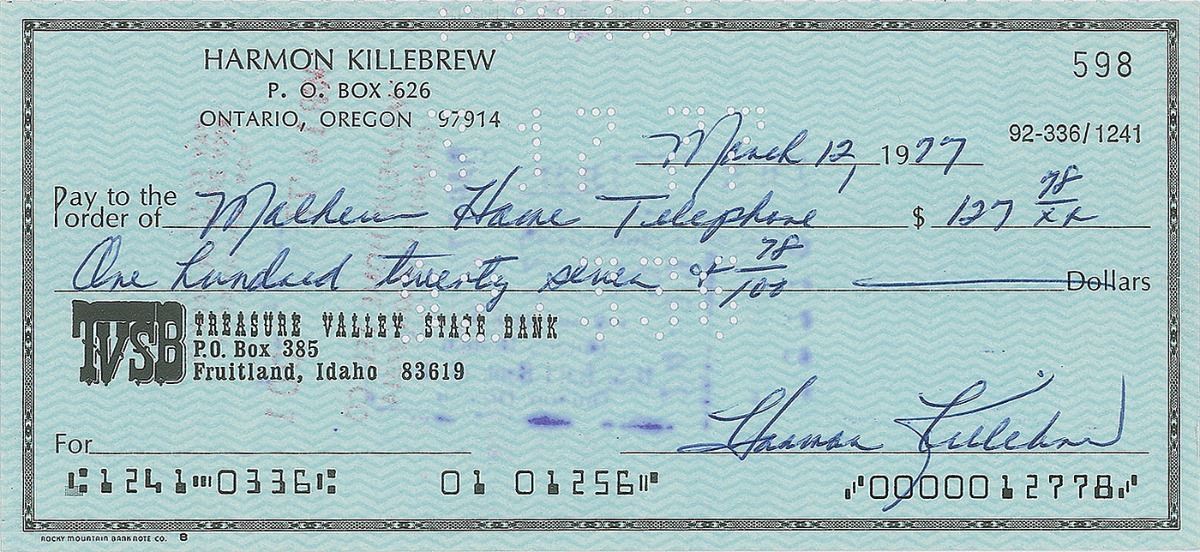 HARMON KILLEBREW
P. O. BOX 626
ONTARIO, OREGON 97914
598
92-336/1241
March 12, 1977
Pay to the order of Malheur Home Telephone $ 127 78/xx
One hundred twenty seven & 78/100 Dollars
TVSB TREASURE VALLEY STATE BANK
P.O. Box 385
Fruitland, Idaho 83619
Harmon Killebrew
For
⑆1241⑉0336⑆ 01 01256⑈ ⑇0000012778⑇
ROCKY MOUNTAIN BANK NOTE CO. 8